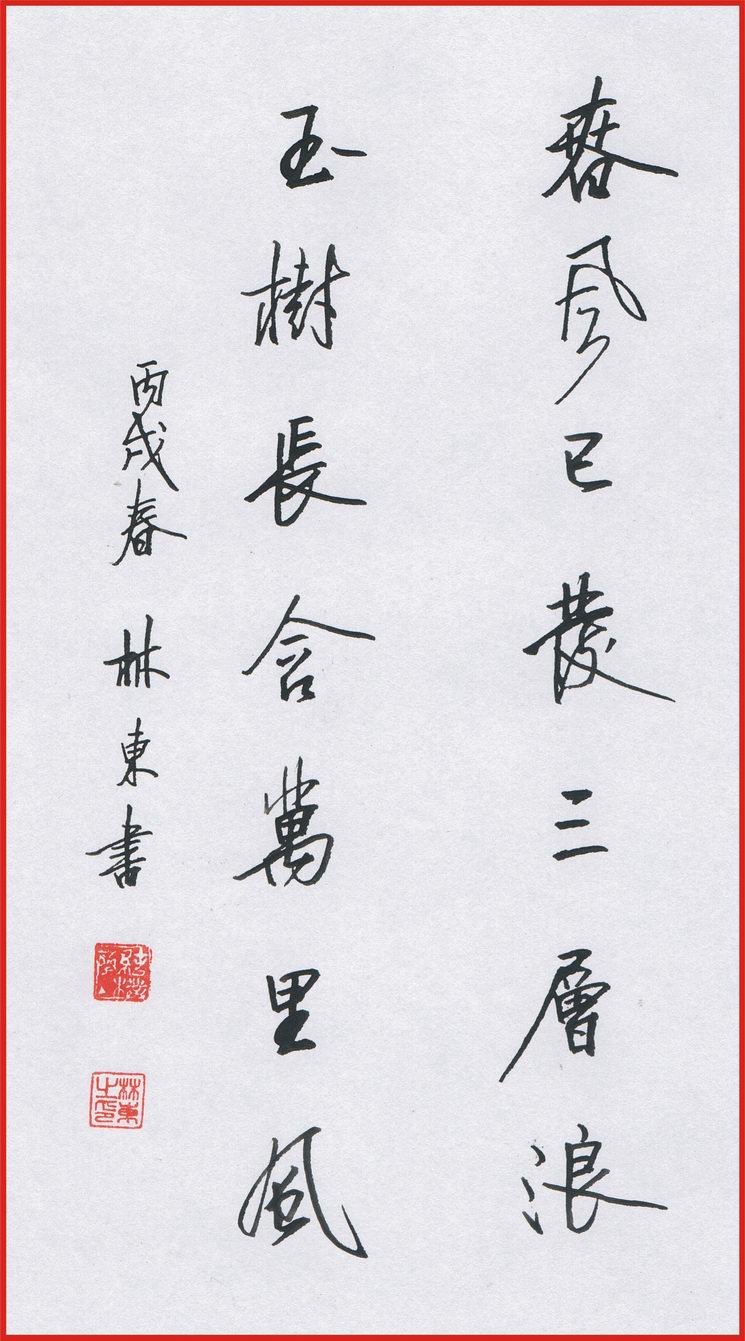 春風已發三層浪
玉樹長含萬里風
丙戌春 林東書
林東之印